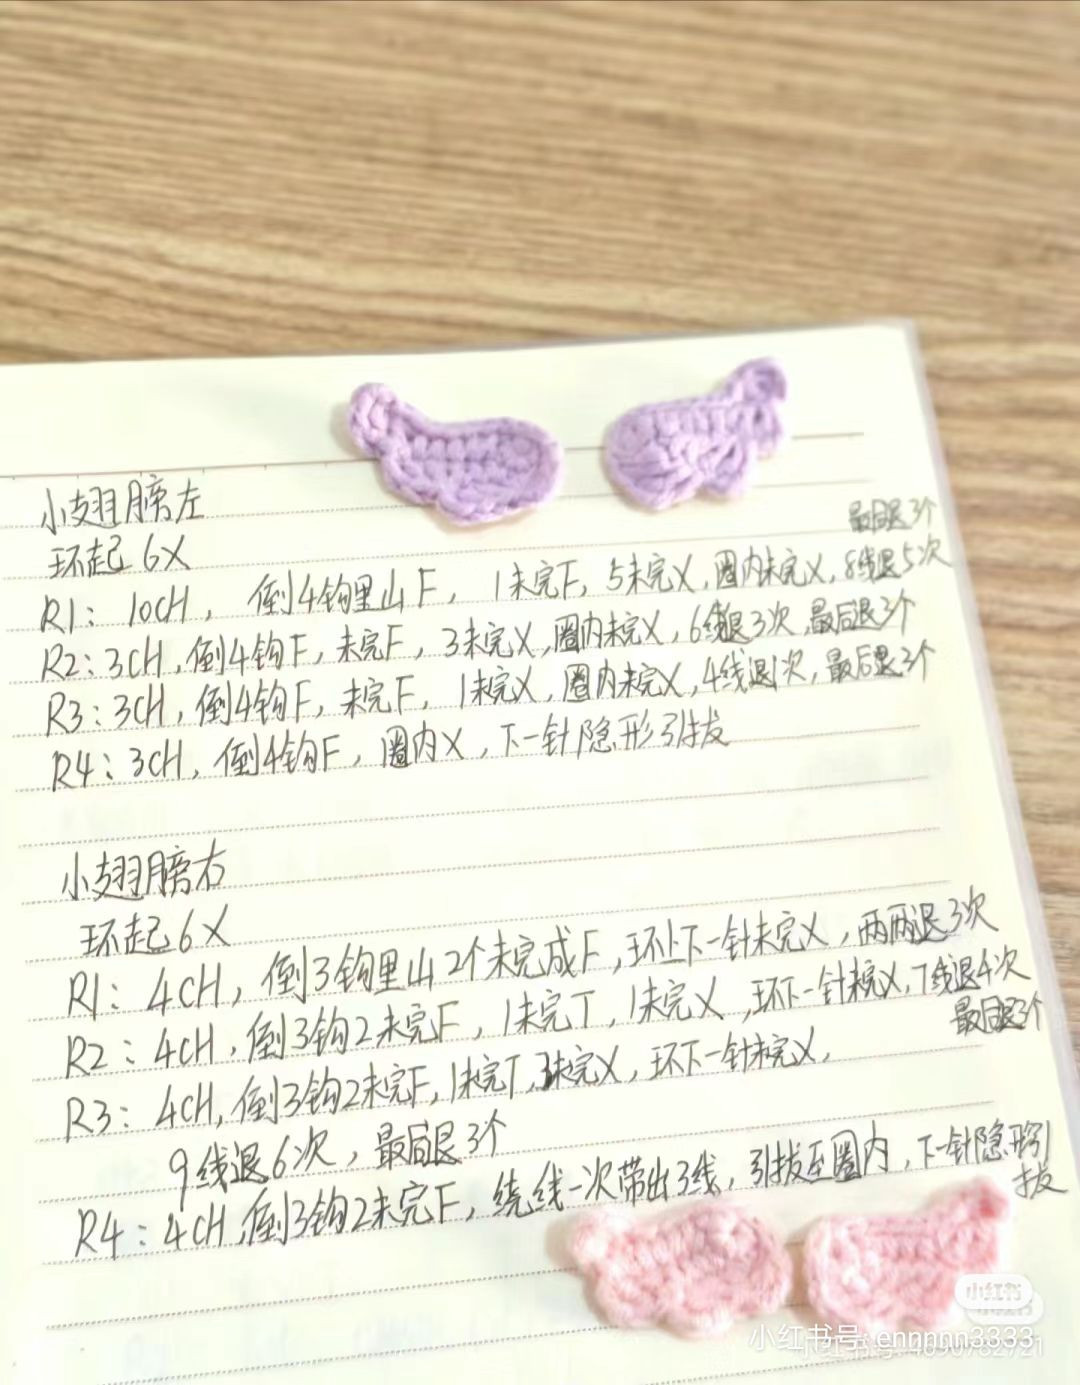 小翅膀左
环起 6X
最后退3个
R1: 10CH, 倒4钩里山F, 1未完F, 5未完X, 圈内未完X, 8线退5次
R2: 3CH, 倒4钩F, 未完F, 3未完X, 圈内未完X, 6线退3次, 最后退3个
R3: 3CH, 倒4钩F, 未完F, 1未完X, 圈内未完X, 4线退1次, 最后退3个
R4: 3CH, 倒4钩F, 圈内X, 下一针隐形引拔
小翅膀右
环起6X
R1: 4CH, 倒3钩里山2个未完成F, 环上下一针未完X, 两两退3次
R2: 4CH, 倒3钩2未完F, 1未完T, 1未完X, 环下一针未完X, 7线退4次
最后退3个
R3: 4CH, 倒3钩2未完F, 1未完T, 3未完X, 环下一针未完X,
9线退6次, 最后退3个
R4: 4CH, 倒3钩2未完F, 绕线一次带出3线, 引拔至圈内, 下一针隐形引
拔
小红书
小红书号: ennnnn3333